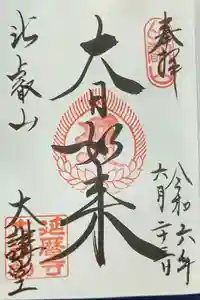 奉拝
令和六年
六月二十二日
大日如来
比叡山
大講堂
延暦寺